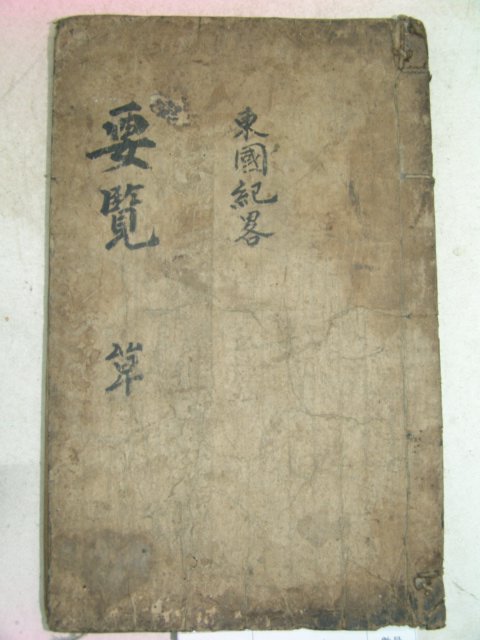 東國紀畧
要覽
單